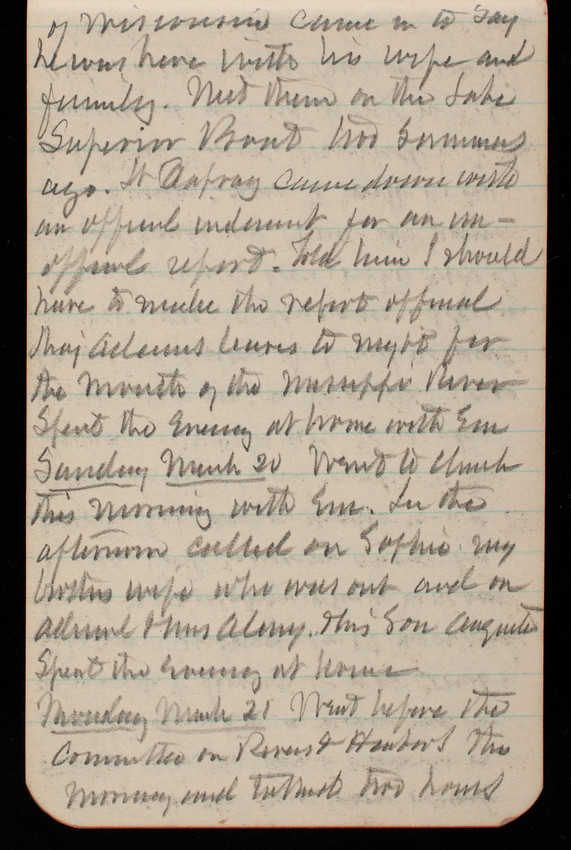 of Wisconsin came in to say
he was here with his wife and
family. Met them on the Lake
Superior Boat two Summers
ago. Lt came down with
an official indorsement for an un-
official report. Told him I should
have to make the report official
Maj Adams leaves to night for
the Mouth of the Missippi River
Spent the Evening at home with Em
Sunday March 20 Went to Church
this morning with Em. In the
afternoon called on Sophie my
brothers wife who was out and on
Admiral & Mrs Almy. His Son Augustus
Spent the Evening at home
Monday March 21 Went before the
Committee on Rivers & Harbors the
morning and talked two hours